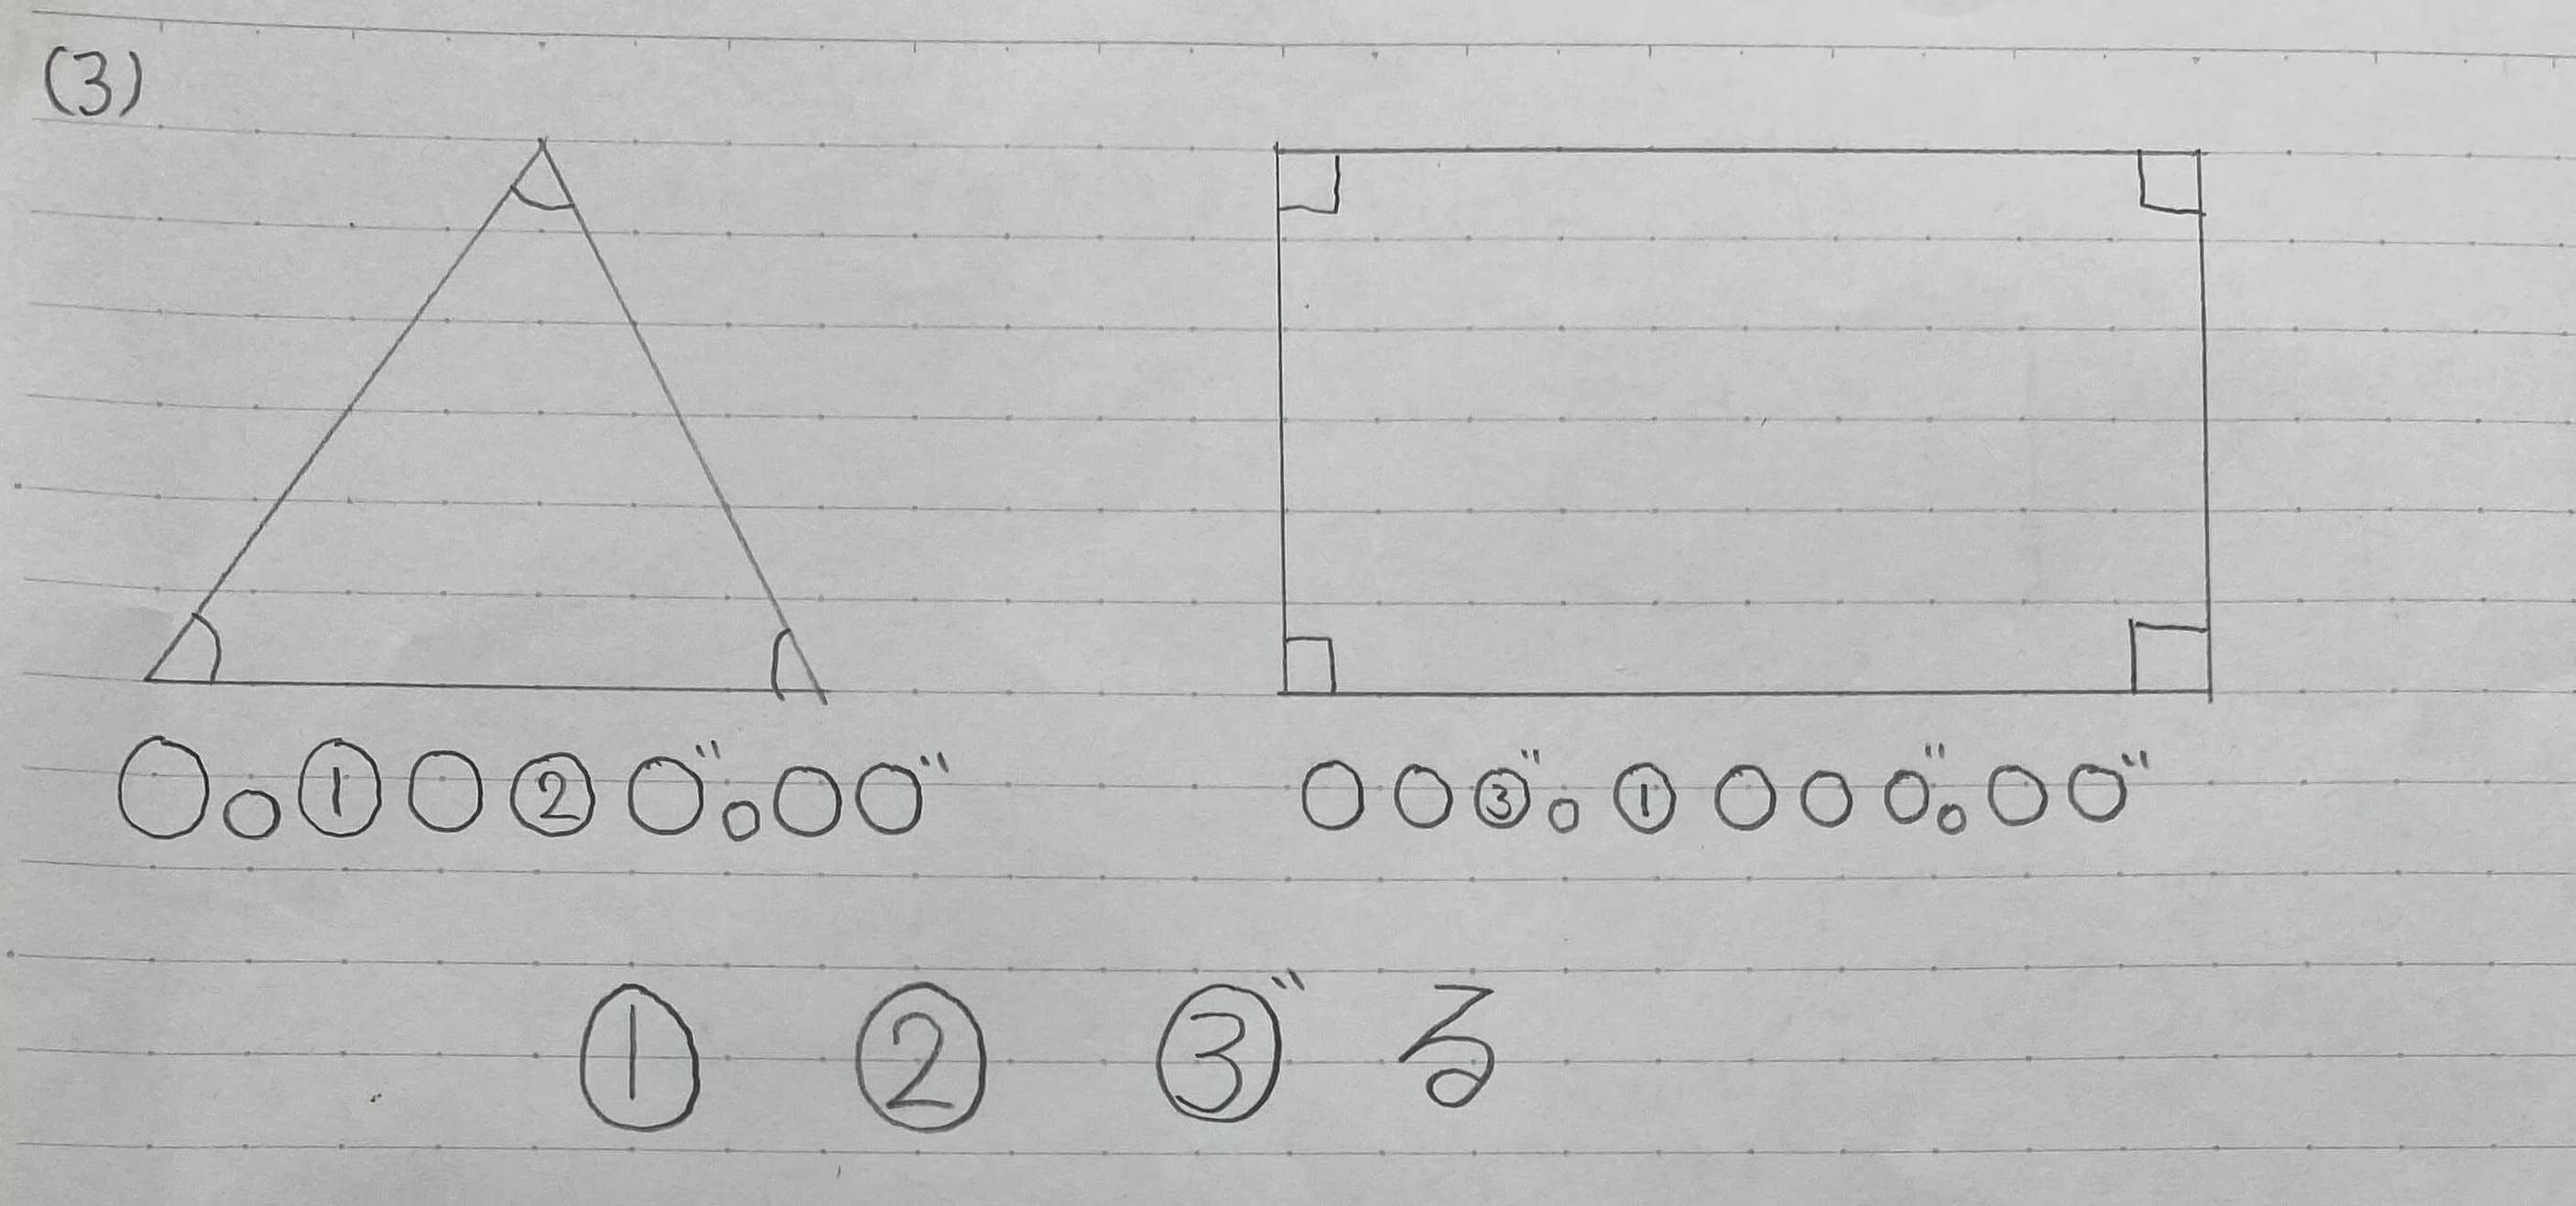 (3)
○○①○②○"○○○" ○○③"○①○○○"○○○"
① ② ③" る